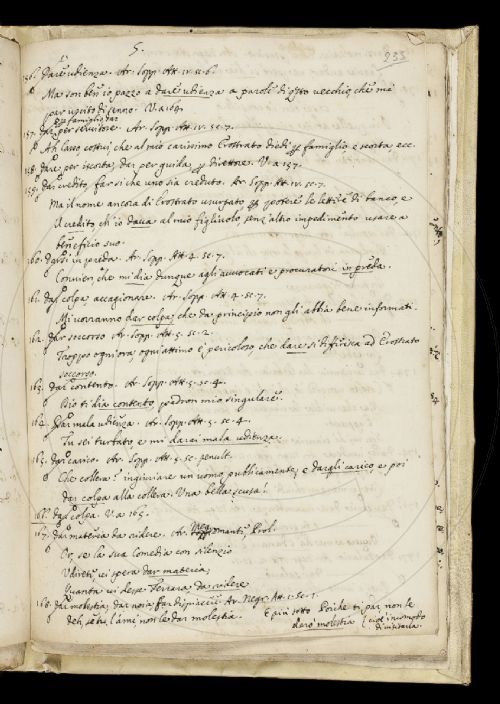 5. 233
156. Dare udienza. Ar. Supp. Att. iv. sc. 6.
Ma son ben io pazzo a dare udienza a parole di questo vecchio, che mi
par uscito di senno. V. a 164
per famiglio dar
157. dar per servitore. Ar. Supp. Att. iv. sc. 7.
Ah lasso costui, che al mio carissimo Erostrato diedi per famiglio e scorta ecc.
158. dare per iscorta, dar per guida, per direttore. V. a 157.
159. dar credito, far si che uno sia creduto. Ar. Supp. Att. iv. sc. 7.
Ma il nome ancora di Erostrato usurpato per potere le lettere di banco, e
il credito, ch'io dava al mio figliuolo, senz'altro impedimento usare a
beneficio suo.
160. darsi in preda. Ar. Supp. Att. 4. sc. 7.
Convien, che mi dia dunque agli avvocati e procuratori in preda.
161. dar colpa, accagionare. Ar. Supp. Att. 4. sc. 7.
Mi vorranno dar colpa, che da principio non gli abbia bene informati.
162. dar soccorso Ar. Supp. Att. 5. sc. 2.
Troppo ogni ora, ogni attimo è pericoloso, che dare si differisca ad Erostrato
soccorso.
163. dar contento. Ar. Supp. Att. 5. sc. 4.
Dio ti dia contento, padron mio singulare.
164. Dar mala udienza. Ar. Supp. Att. 5. sc. 4.
Tu sei turbato, e mi darai mala udienza.
165. dar carico. Ar. Supp. Att. 5. sc. penult.
Che collera è ingiuriare un uomo publicamente, e dargli carico, e poi
dar colpa alla collera. Una bella scusa!
166. dar colpa. V. a 165.
167. dar materia da ridere. Ar. Negromante, Prol.
Or se la sua Comedia con silenzio
Udirete, vi spera dar materia,
Quanta vi desse Ferrara, da ridere
168. dar molestia, dar noia, far dispiacere Ar. Negr. Att. 1. sc. 1.
deh, se tu l'ami, non le dar molestia. E più sotto Poiche ti par non le
darò molestia (cioè incomodo
di visitarla.